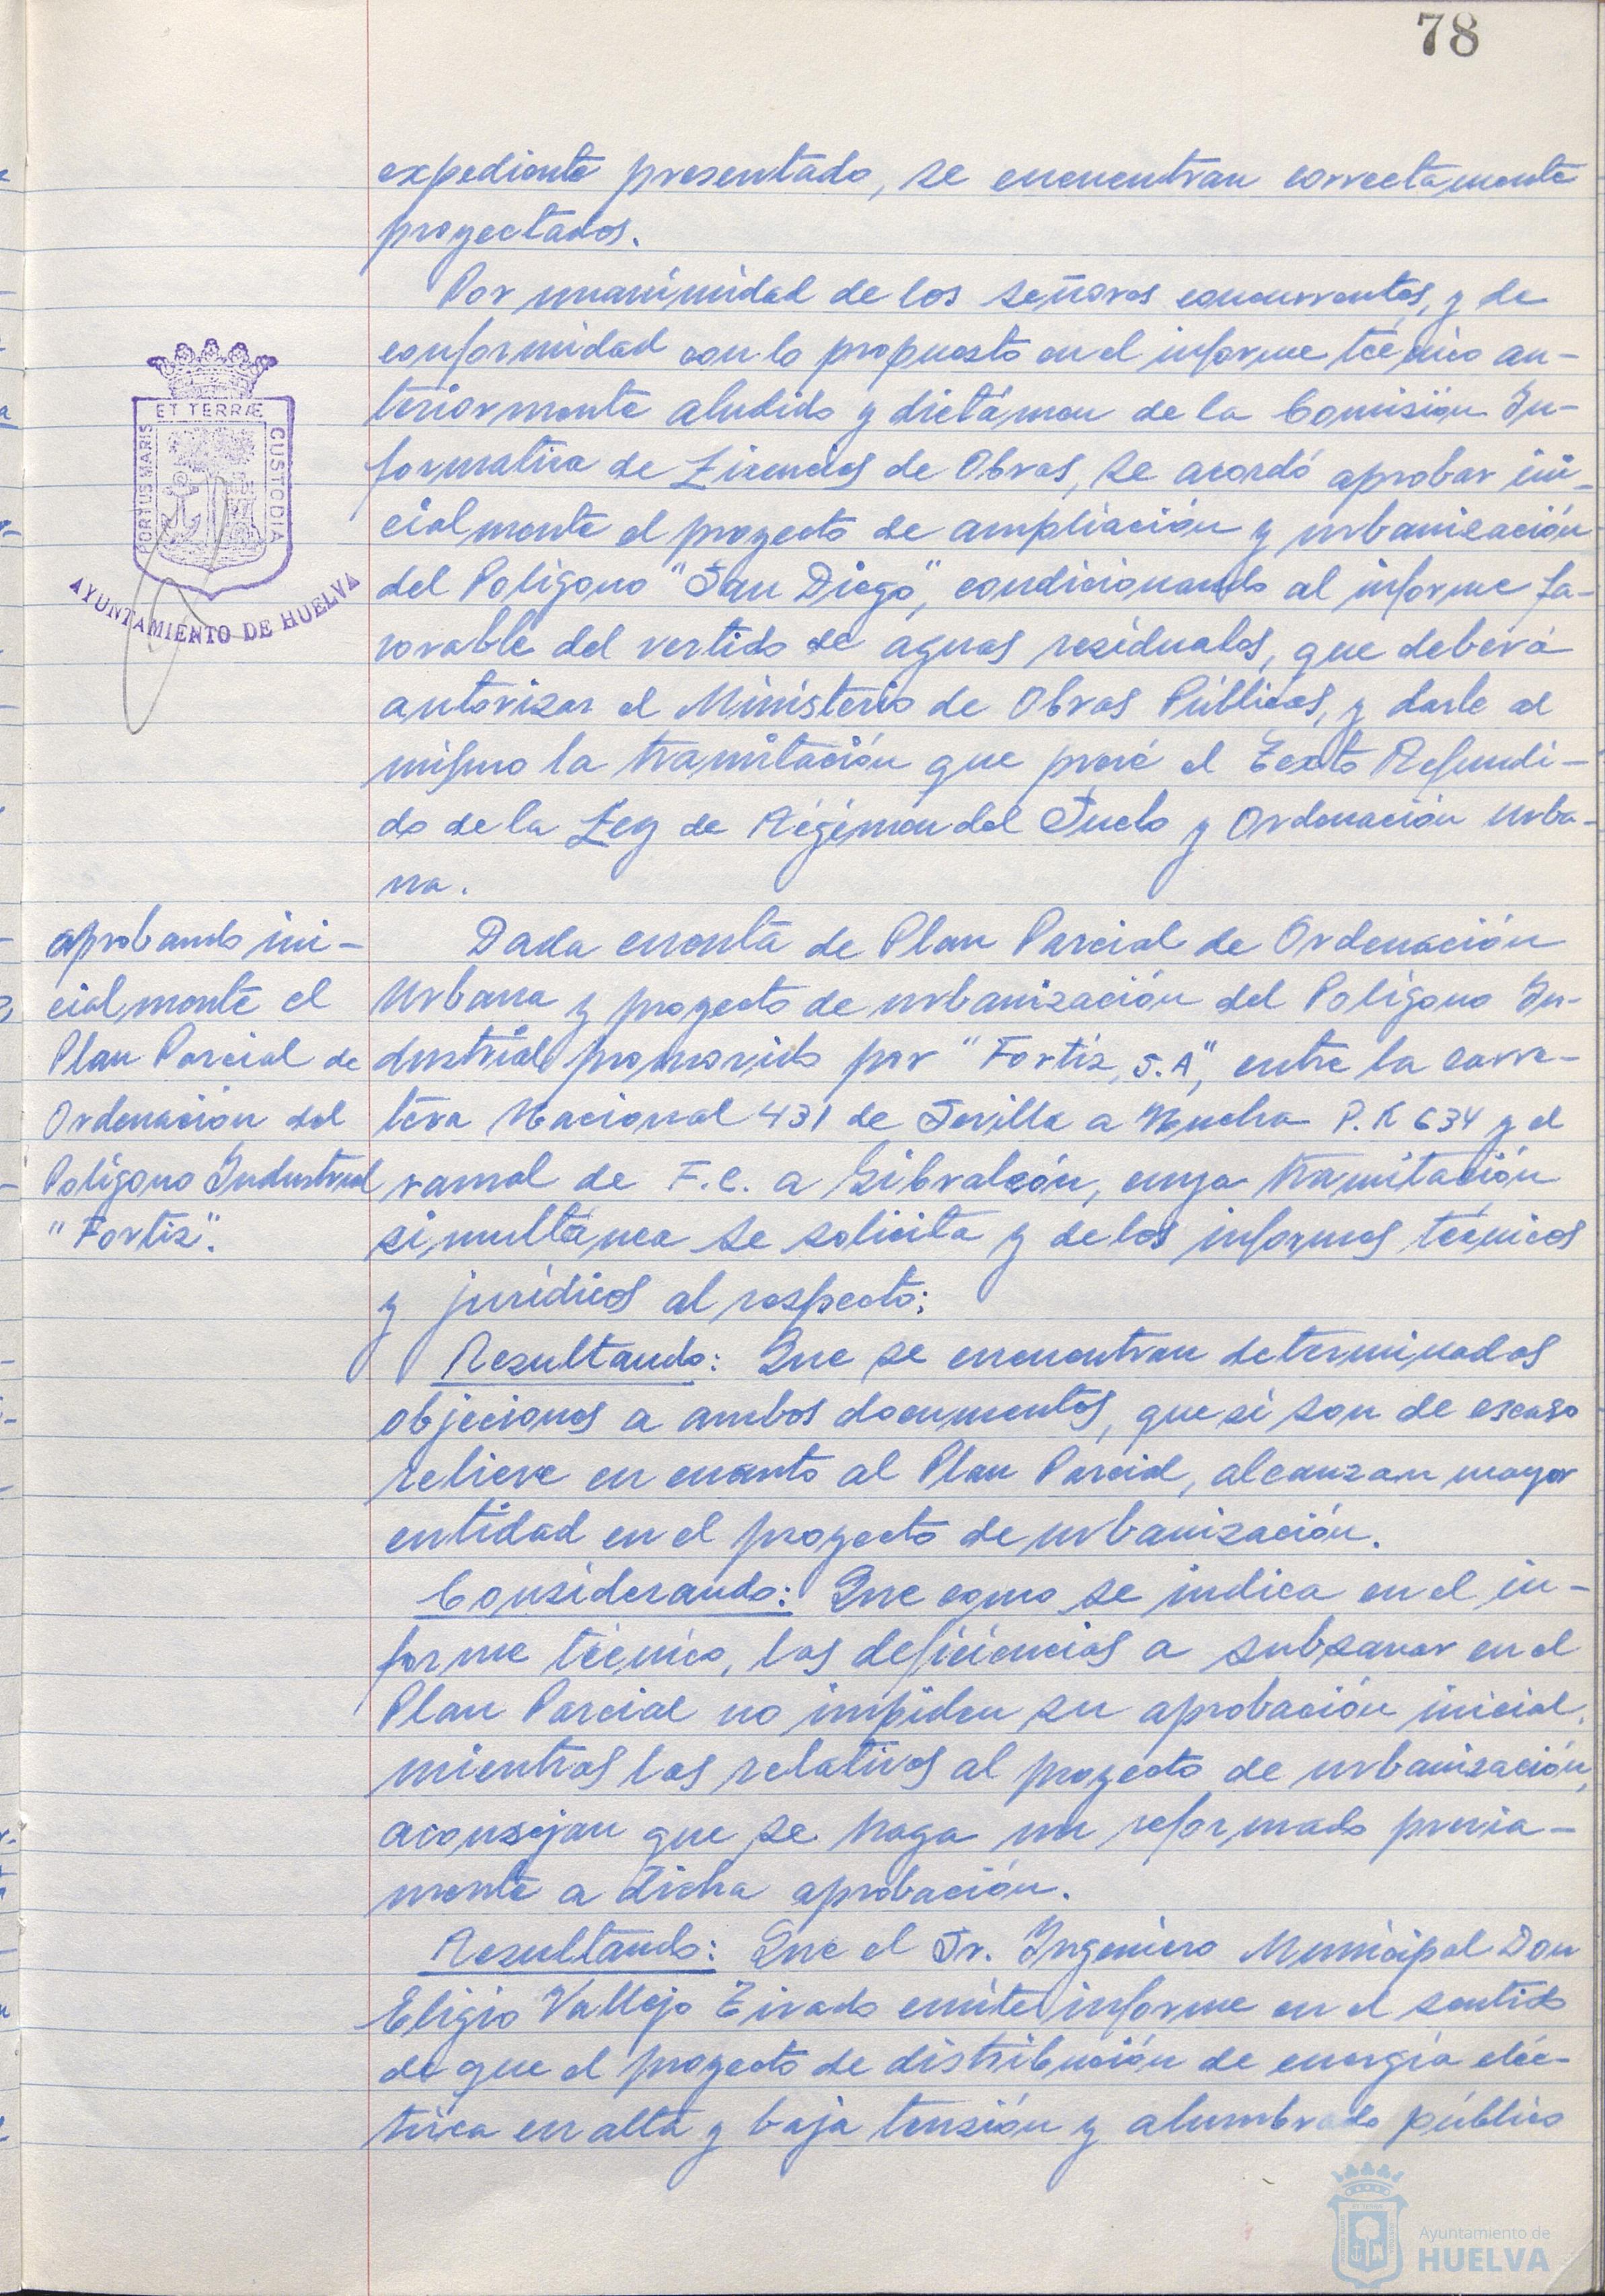 78
expediente presentado, se encuentran correctamente
proyectados.
Por unanimidad de los señores concurrentes, y de
conformidad con lo propuesto en el informe técnico an-
teriormente aludido y dictámen de la Comisión In-
formativa de Licencias de Obras, se acordó aprobar ini-
cialmente el proyecto de ampliación y urbanización
del Polígono "San Diego", condicionando al informe fa-
vorable del vertido de aguas residuales, que deberá
autorizar el Ministerio de Obras Públicas, y darle al
mismo la tramitación que prevé el Texto Refundi-
do de la Ley de Régimen del Suelo y Ordenación Urba-
na.
ET TERRÆ
PORTUS MARIS
CUSTODIA
AYUNTAMIENTO DE HUELVA
aprobando ini-
cialmente el
Plan Parcial de
Ordenación del
Polígono Industrial
"Fortiz".
Dada cuenta de Plan Parcial de Ordenación
Urbana y proyecto de urbanización del Polígono In-
dustrial promovido por "Fortiz, S.A", entre la carre-
tera Nacional 431 de Sevilla a Huelva P.K 634 y el
ramal de F.C. a Gibraleón, cuya tramitación
simultánea se solicita y de los informes técnicos
y jurídicos al respecto;
Resultando: Que se encuentran determinados
objeciones a ambos documentos, que si son de escaso
relieve en cuanto al Plan Parcial, alcanzan mayor
entidad en el proyecto de urbanización.
Considerando: Que como se indica en el in-
forme técnico, las deficiencias a subsanar en el
Plan Parcial no impiden su aprobación inicial,
mientras las relativas al proyecto de urbanización,
aconsejan que se haga un reformado previa-
mente a dicha aprobación.
Resultando: Que el Sr. Ingeniero Municipal Don
Eligio Vallejo Tirado emite informe en el sentido
de que el proyecto de distribución de energía eléc-
trica en alta y baja tensión y alumbrado público
Ayuntamiento de
HUELVA